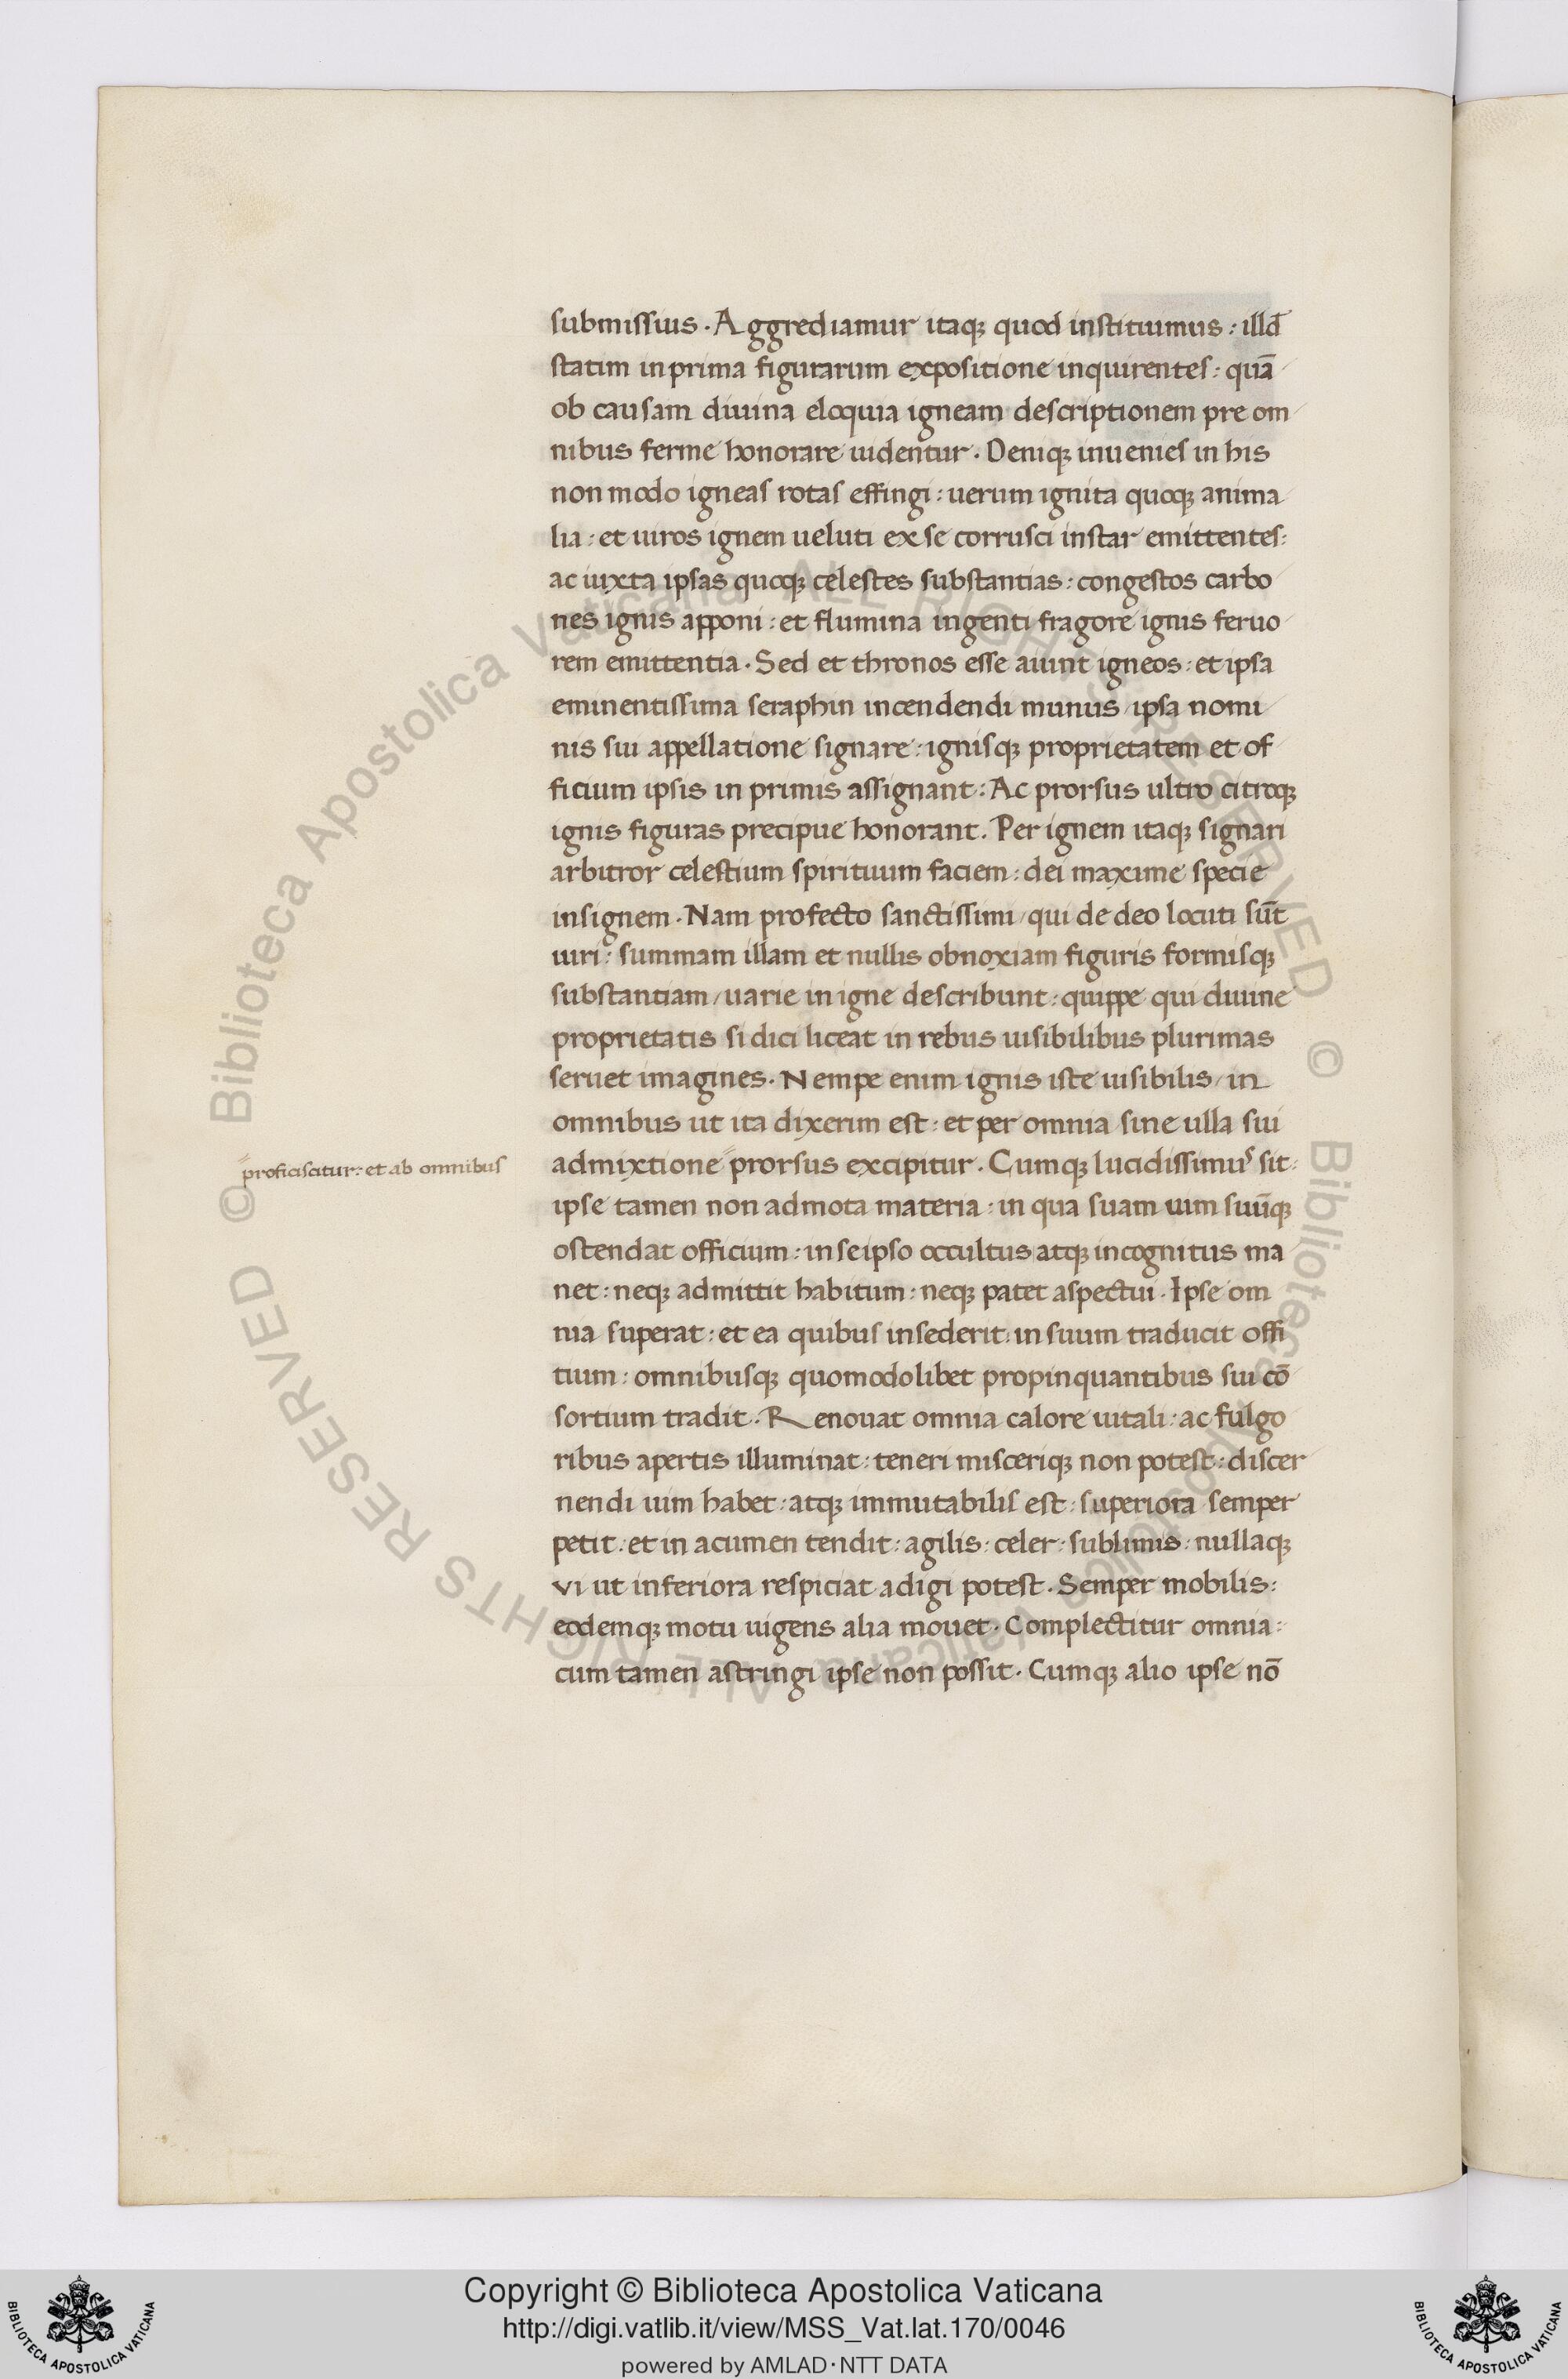 submissius. Aggrediamur itaqȝ quod instituimus: illd̄
statim in prima figurarum expositione inquirentes: quā
ob causam diuina eloquia igneam descriptionem pre om
nibus ferme honorare uidentur. Deniqȝ inuenies in his
non modo igneas rotas effingi: uerum ignita quoqȝ anima
lia: et uiros ignem ueluti ex se corrusci instar emittentes:
ac iuxta ipsas quoqȝ celestes substantias: congestos carbo
nes ignis apponi: et flumina ingenti fragore ignis feruo
rem emittentia. Sed et thronos esse aiunt igneos: et ipsa
eminentissima seraphin incendendi munus / ipsa nomi
nis sui appellatione signare: ignisqȝ proprietatem et of
ficium ipsis in primis assignant: Ac prorsus ultro citroqȝ
ignis figuras precipue honorant. Per ignem itaqȝ signari
arbitror celestium spirituum faciem: dei maxime specie
insignem. Nam profecto sanctissimi / qui de deo locuti sūt
uiri: summam illam et nullis obnoxiam figuris formisqȝ
substantiam / uarie in igne describunt: quippe qui diuine
proprietatis si dici liceat in rebus uisibilibus plurimas
seruet imagines. Nempe enim ignis iste uisibilis / in
omnibus ut ita dixerim est: et per omnia sine ulla sui
admixtione // prorsus excipitur. Cumqȝ lucidissimus sit:
// proficiscitur: et ab omnibus
ipse tamen non admota materia: in qua suam uim suūqȝ
ostendat officium: in seipso occultus atqȝ incognitus ma
net: neqȝ admittit habitum: neqȝ patet aspectui. Ipse om
nia superat: et ea quibus insederit: in suum traducit offi
tium: omnibusqȝ quomodolibet propinquantibus sui cō
sortium tradit. Renouat omnia calore uitali: ac fulgo
ribus apertis illuminat: teneri misceriqȝ non potest: discer
nendi uim habet: atqȝ immutabilis est: superiora semper
petit: et in acumen tendit: agilis: celer: sublimis: nullaqȝ
vi ut inferiora respiciat adigi potest. Semper mobilis:
eodemqȝ motu uigens alia mouet. Complectitur omnia:
cum tamen astringi ipse non possit. Cumqȝ alio ipse nō
© Biblioteca Apostolica Vaticana ALL RIGHTS RESERVED © Biblioteca Apostolica Vaticana ALL RIGHTS RESERVED
Copyright © Biblioteca Apostolica Vaticana
http://digi.vatlib.it/view/MSS_Vat.lat.170/0046
powered by AMLAD·NTT DATA
BIBLIOTECA APOSTOLICA VATICANA
BIBLIOTECA APOSTOLICA VATICANA